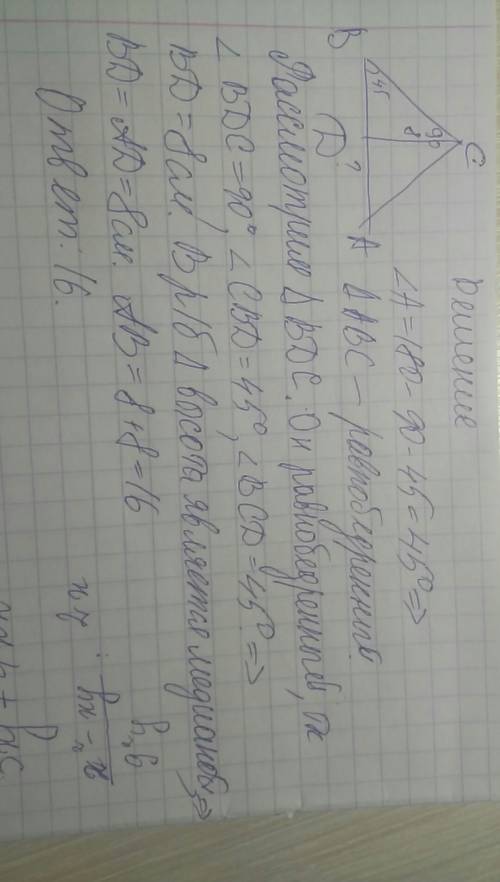 Решение
C
90
8
45
?
B
D
A
∠A = 180 - 90 - 45 = 45° =>
Δ ABC - равнобедренный.
Рассмотрим Δ BDC. Он равнобедренный, тк
∠ BDC = 90°, ∠ CBD = 45°, ∠ BCD = 45° =>
BD = 8 см. В р/б Δ высота является медианой =>
BD = AD = 8 см. AB = 8 + 8 = 16
Ответ: 16.